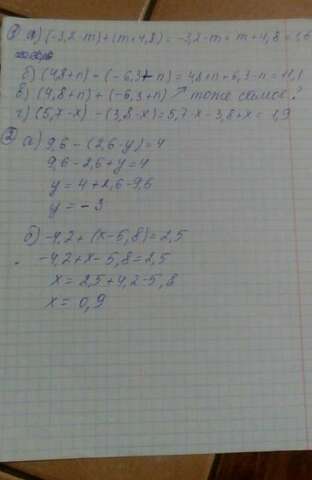 ① а) (-3,2-m)+(m+4,8) = -3,2-m+m+4,8 = 1,6
б) (4,8+n)-(-6,3+n) = 4,8+n+6,3-n = 11,1
в) (4,8+n)+(-6,3+n) ↗ тоже самое?
г) (5,7-x)-(3,8-x) = 5,7-x-3,8+x = 1,9
② а) 9,6-(2,6-y)=4
9,6-2,6+y=4
y=4+2,6-9,6
y=-3
б) -4,2+(x-5,8)=2,5
-4,2+x-5,8=2,5
x=2,5+4,2-5,8
x=0,9